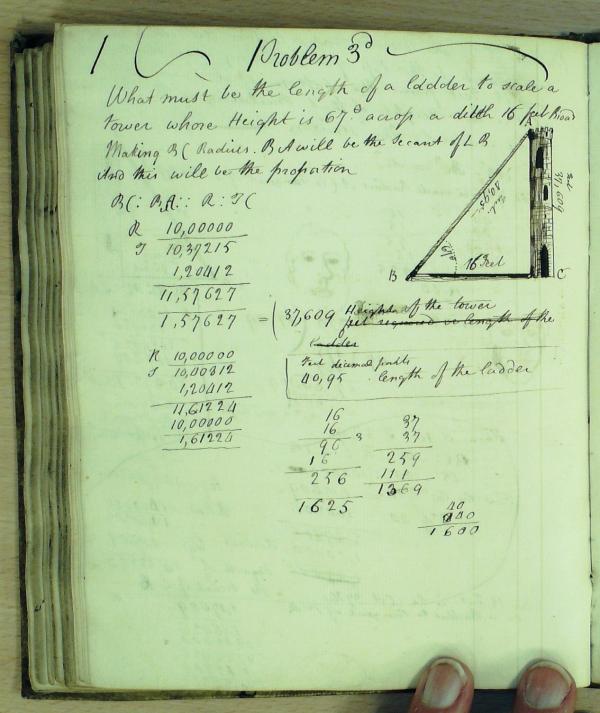 1 Problem 3d
What must be the length of a ladder to scale a
tower whose Height is 67° across a ditch 16 feet Broad
Making BC Radius. BA will be the Secant of L B
And this will be the proportion
BC: BA:: R: T C
R 10,00000
T 10,37215
1,20412
11,57627
1,57627 = (37,609 Height of the tower
feet required or length of the
ladder
R 10,00000
S 10,40812
1,20412
11,61224
10,00000
1,61224
Feet decimal points
40,95 . length of the ladder
16
16
96 3
16
256
1625
37
37
259
111
1369
40
40
1600
40.95
37,609
16 Feet
B C